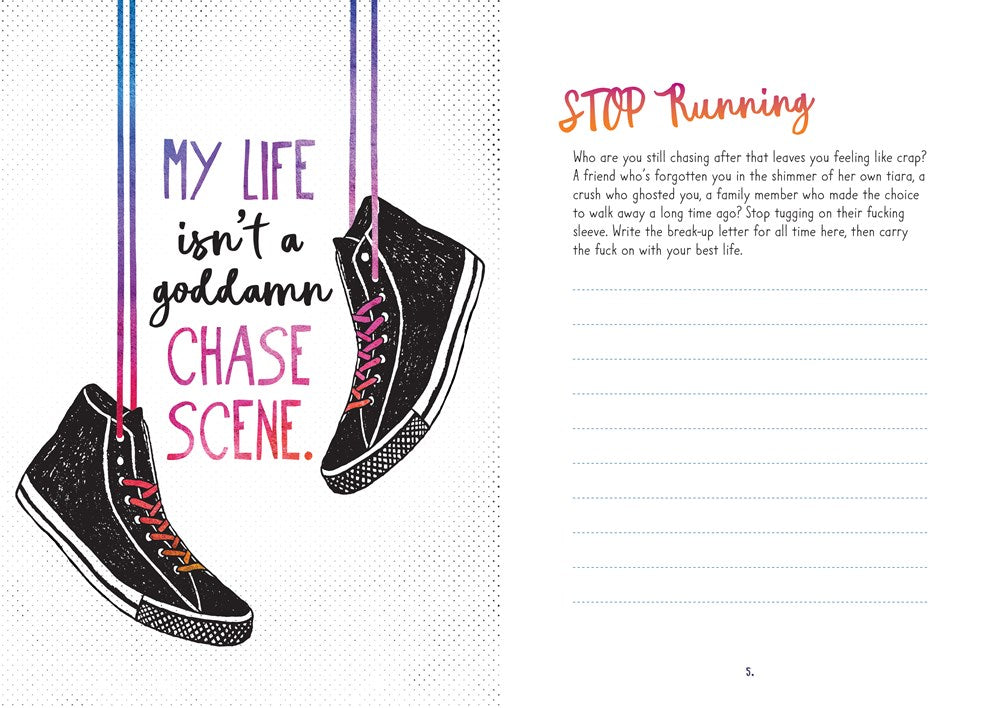 MY LIFE
isn't a
goddamn
CHASE
SCENE.
STOP Running
Who are you still chasing after that leaves you feeling like crap?
A friend who's forgotten you in the shimmer of her own tiara, a
crush who ghosted you, a family member who made the choice
to walk away a long time ago? Stop tugging on their fucking
sleeve. Write the break-up letter for all time here, then carry
the fuck on with your best life.
5.